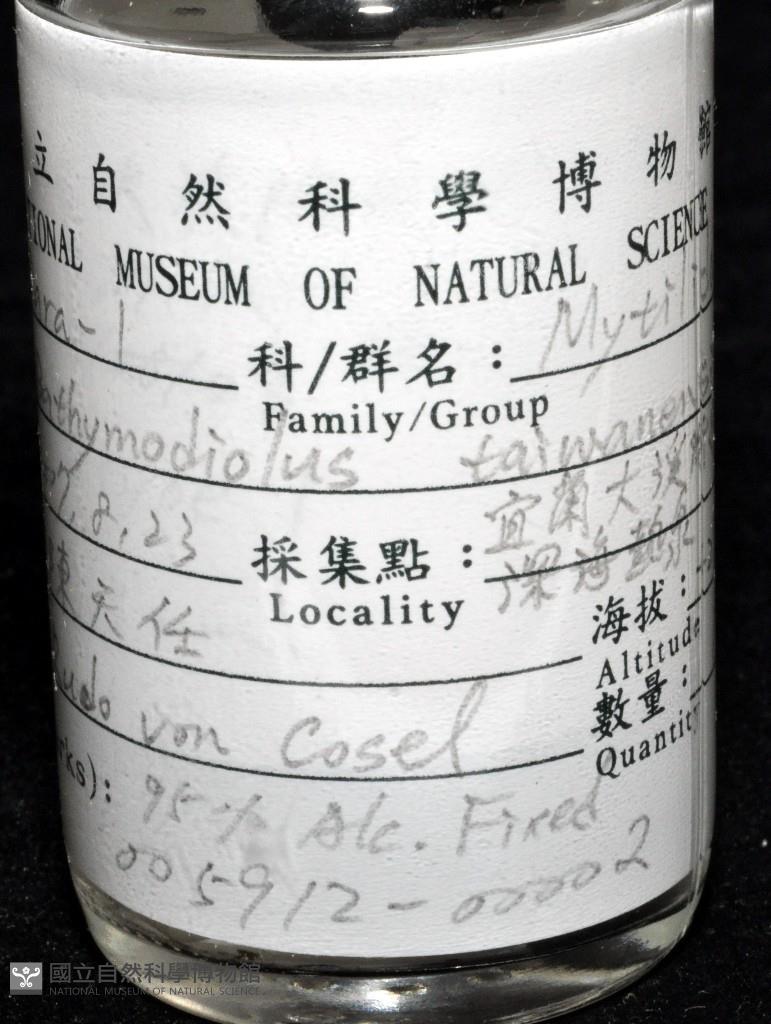 立自然科學博物館
NATIONAL MUSEUM OF NATURAL SCIENCE
ara-1 科/群名： Mytili
Family/Group
Bathymodiolus taiwanens
97.8.23 採集點： 宜蘭大溪
Locality 深海熱泉
陳天任 海拔：
Altitude
Rudo von Cosel 數量：
Quantity
rks): 95% Alc. Fixed
005912-00002
國立自然科學博物館
NATIONAL MUSEUM OF NATURAL SCIENCE